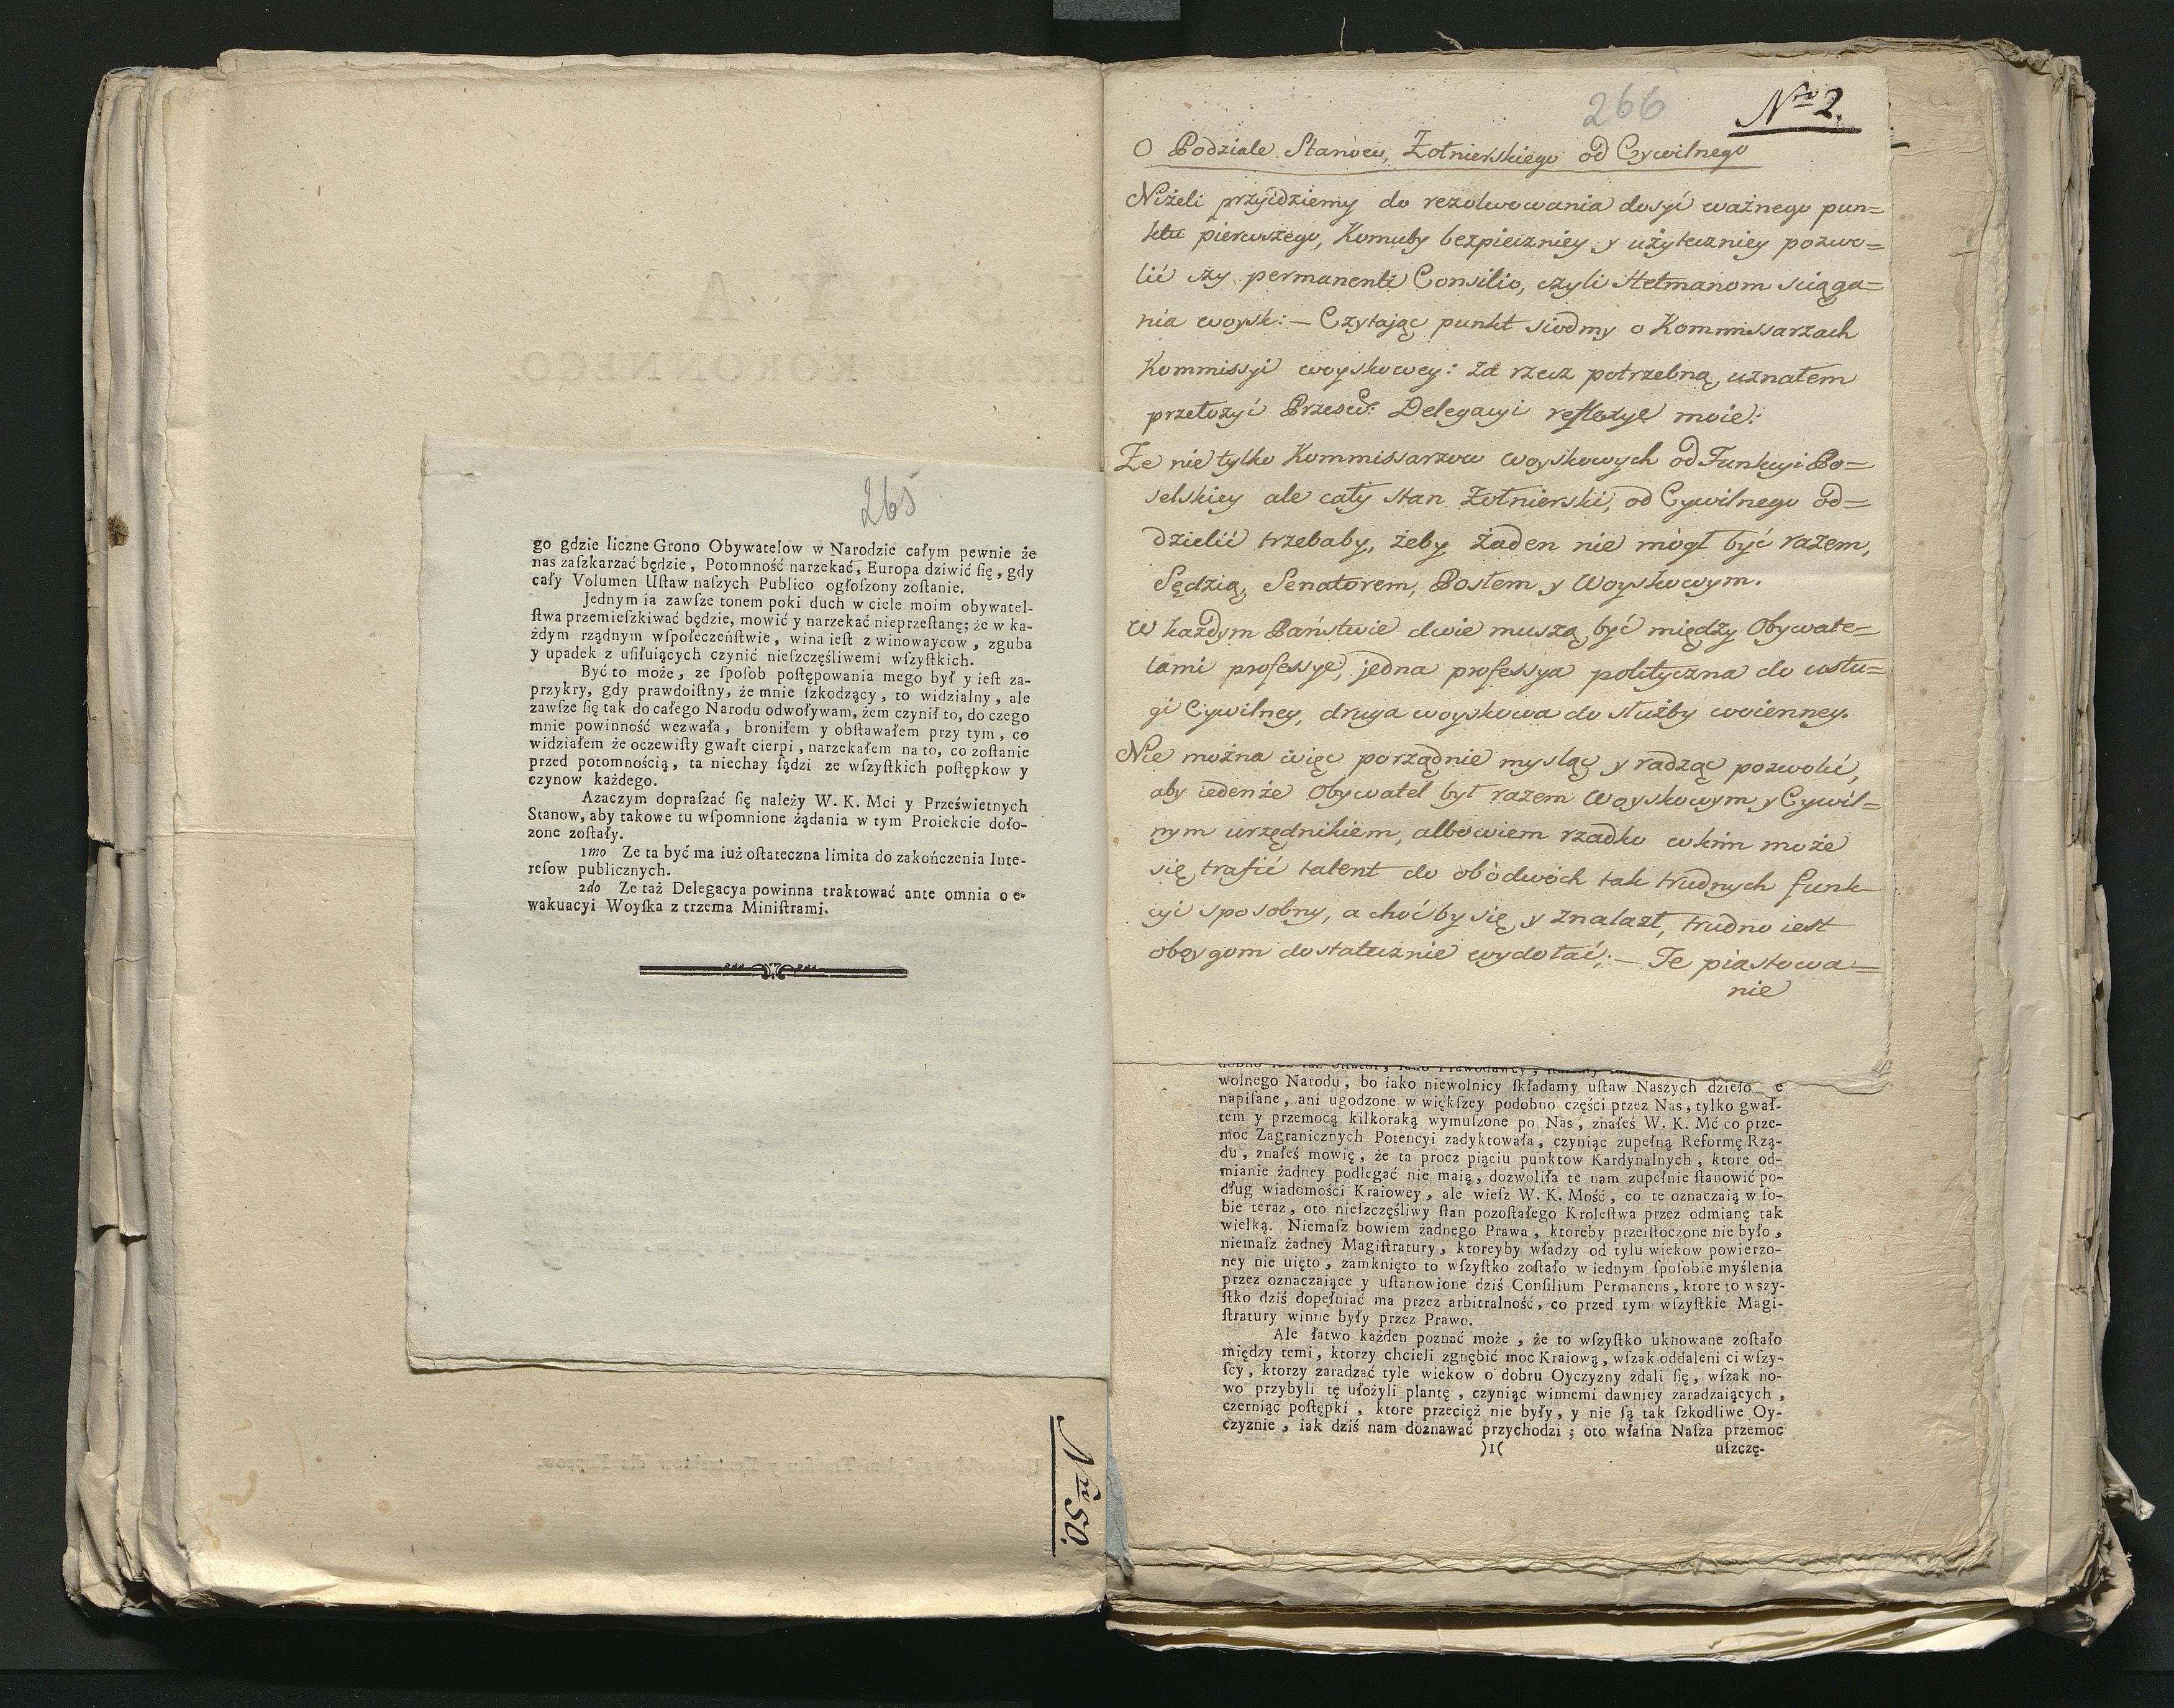 265
go gdzie liczne Grono Obywatelow w Narodzie całym pewnie że
nas zaſzkarzać będzie, Potomność narzekać, Europa dziwić ſię, gdy
cały Volumen Uſtaw naſzych Publico ogłoſzony zoſtanie.
Jednym ia zawſze tonem poki duch w ciele moim obywatel-
ſtwa przemieſzkiwać będzie, mowić y narzekać nieprzeſtanę; że w ka-
żdym rządnym wſpołeczeńſtwie, wina ieſt z winowaycow, zguba
y upadek z uſiłuiących czynić nieſzczęśliwemi wſzyſtkich.
Być to może, ze ſpoſob poſtępowania mego był y ieſt za-
przykry, gdy prawdoiſtny, że mnie ſzkodzący, to widzialny, ale
zawſze ſię tak do całego Narodu odwoływam, żem czynił to, do czego
mnie powinność wezwała, broniłem y obſtawałem przy tym, co
widziałem że oczewiſty gwałt cierpi, narzekałem na to, co zoſtanie
przed potomnością, ta niechay ſądzi ze wſzyſtkich poſtępkow y
czynow każdego.
Azaczym dopraſzać ſię należy W. K. Mci y Prześwietnych
Stanow, aby takowe tu wſpomnione żądania w tym Proiekcie doło-
zone zoſtały.
1mo Ze ta być ma iuż oſtateczna limita do zakończenia Inte-
reſow publicznych.
2do Ze taż Delegacya powinna traktować ante omnia o e-
wakuacyi Woyſka z trzema Miniſtrami.
Nro 50.
266
Nro 2.
O Podziale Stanów, Żołnierskiego od Cywilnego
Niżeli przyidziemy do rezolwowania dosyć ważnego pun=
ktu pierwszego, Komuby bezpieczniey y użyteczniey pozwo=
lić czy permanenti Consilio, czyli Hetmanom sciąga=
nia woysk: — Czytając punkt siodmy o Kommissarzach
Kommissyi woyskowey: za rzecz potrzebną uznałem
przełożyć Przesw: Delegacyi reflexye moie:
Że nie tylko Kommissarzow woyskowych od Funkcyi Po=
selskiey ale cały stan Żołnierski, od Cywilnego od=
dzielić trzebaby, żeby żaden nie mógł być razem,
Sędzią, Senatorem, Posłem y Woyskowym.
W każdym Państwie dwie muszą być między Obywate=
lami professye, jedna professya polityczna do usłu=
gi Cywilney, druga woyskowa do służby woienney.
Nie można więc porządnie mysląc y radząc pozwolić,
aby iedenże Obywatel był razem Woyskowym y Cywil=
nym urzędnikiem, albowiem rzadko w kim może
się trafić talent do obódwóch tak trudnych funk=
cyi sposobny, a choćby się y znalazł, trudno iest
obóygom dostatecznie wydołać; — Te piastowa=
nie
wolnego Narodu, bo iako niewolnicy ſkładamy uſtaw Naszych dzieło e
napiſane, ani ugodzone w większey podobno części przez Nas, tylko gwał-
tem y przemocą kilkoraką wymuſzone po Nas, znałeś W. K. Mć co prze-
moc Zagranicznych Potencyi zadyktowała, czyniąc zupełną Reformę Rzą-
du, znałeś mowię, że ta procz piąciu punktow Kardynalnych, ktore od-
mianie żadney podlegać nie maią, dozwoliła te nam zupełnie ſtanowić po-
dług wiadomości Kraiowey, ale wieſz W. K. Mość, co te oznaczaią w ſo-
bie teraz, oto nieſzczęśliwy ſtan pozoſtałego Kroleſtwa przez odmianę tak
wielką. Niemaſz bowiem żadnego Prawa, ktoreby przeiſtoczone nie było,
niemaſz żadney Magiſtratury, ktoreyby władzy od tylu wiekow powierzo-
ney nie uięto, zamknięto to wſzyſtko zoſtało w iednym ſpoſobie myślenia
przez oznaczaiące y uſtanowione dziś Conſilium Permanens, ktore to wszy-
ſtko dziś dopełniać ma przez arbitralność, co przed tym wſzyſtkie Magi-
ſtratury winne były przez Prawo.
Ale łatwo każden poznać może, że to wſzyſtko uknowane zoſtało
między temi, ktorzy chcieli zgnębić moc Kraiową, wſzak oddaleni ci wſzy-
ſcy, ktorzy zaradzać tyle wiekow o dobru Oyczyzny zdali ſię, wſzak no-
wo przybyli tę ułożyli plantę, czyniąc winnemi dawniey zaradzaiących,
czerniąc poſtępki, ktore przecięż nie były, y nie ſą tak ſzkodliwe Oy-
czyznie, iak dziś nam doznawać przychodzi; oto właſna Naſza przemoc
)1(
uſzczę-